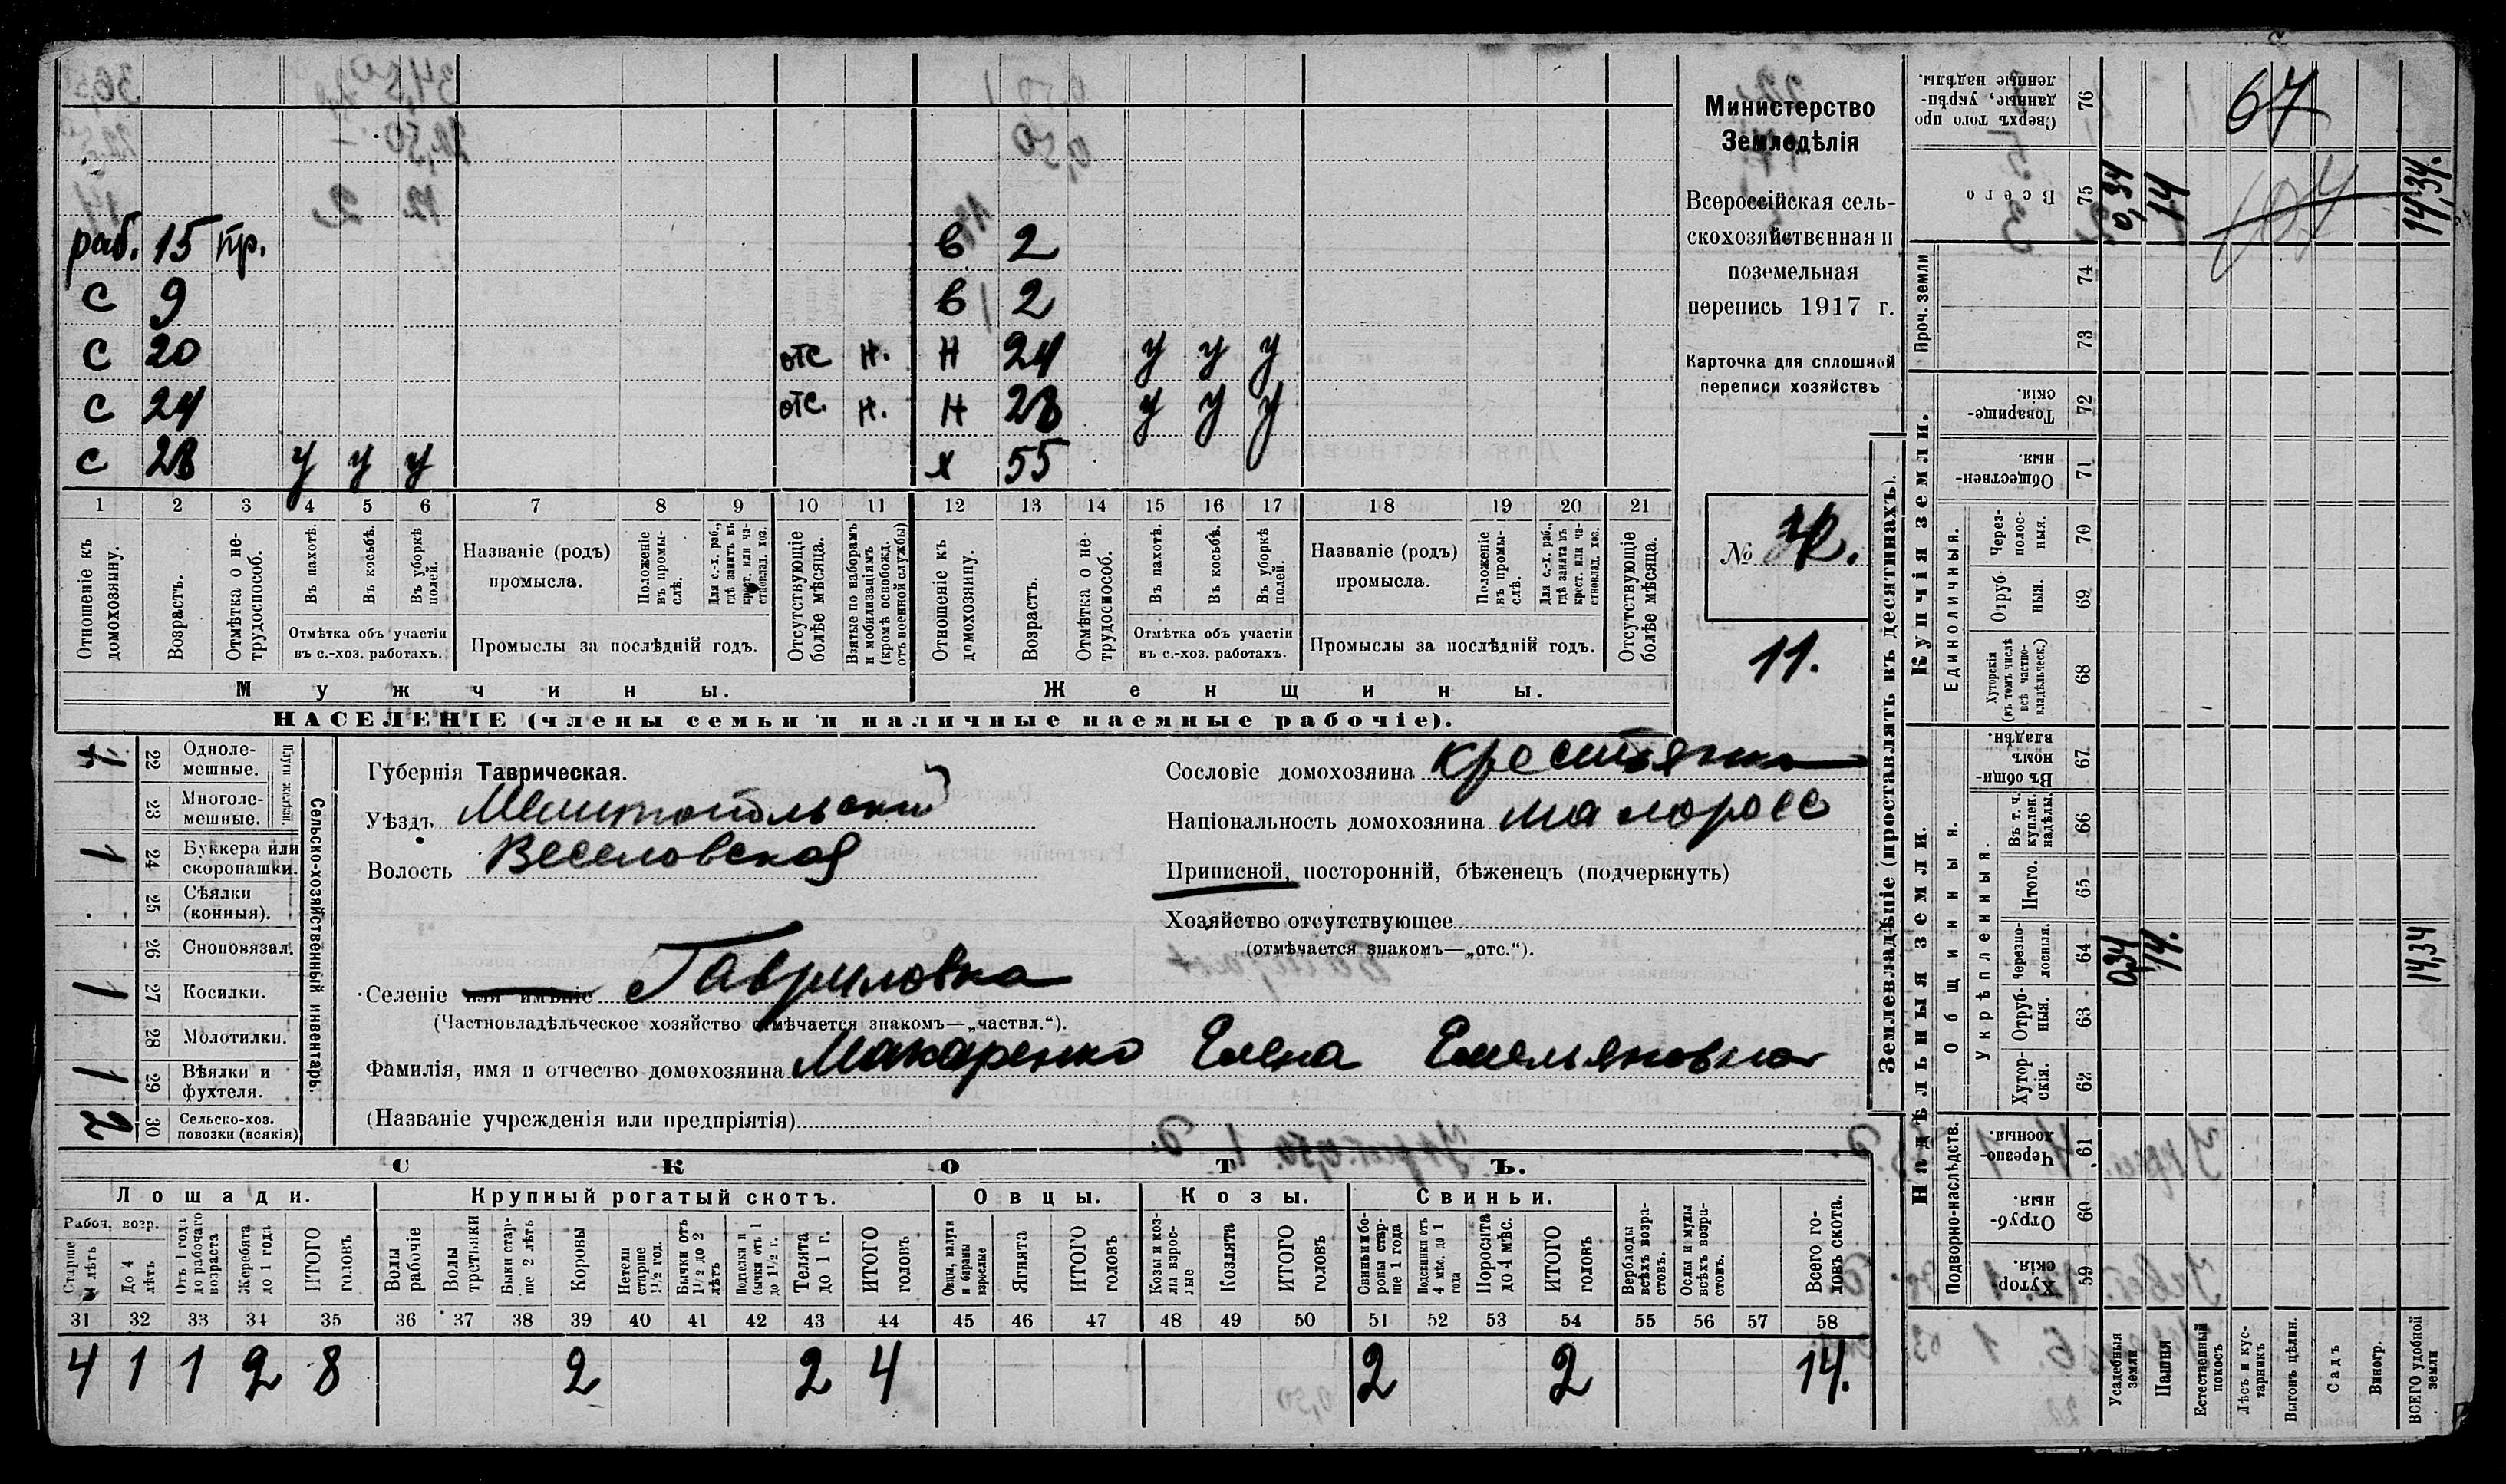 раб. 15 пр. в 2
с 9 в 2
с 20 отс н. н 24 у у у
с 24 отс. н. н 28 у у у
с 28 у у у х 55
1 2 3 4 5 6 7 8 9 10 11 12 13 14 15 16 17 18 19 20 21
Отношеніе къ домохозяину.
Возрастъ.
Отмѣтка о нетрудоспособ.
Въ пахотѣ.
Въ косьбѣ.
Въ уборкѣ полей.
Отмѣтка объ участіи
въ с.-хоз. работахъ.
Названіе (родъ)
промысла.
Положеніе въ промыслѣ.
Для с.-х. раб., гдѣ занятъ въ крест. или частновлад. хоз.
Промыслы за послѣдній годъ.
Отсутствующіе болѣе мѣсяца.
Взятые по наборамъ и мобилизаціямъ (кромѣ освобожд. отъ военной службы)
Отношеніе къ домохозяину.
Возрастъ.
Отмѣтка о нетрудоспособ.
Въ пахотѣ.
Въ косьбѣ.
Въ уборкѣ полей.
Отмѣтка объ участіи
въ с.-хоз. работахъ.
Названіе (родъ)
промысла.
Положеніе въ промыслѣ.
Для с.-х. раб., гдѣ занята въ крест. или частновлад. хоз.
Промыслы за послѣдній годъ.
Отсутствующіе болѣе мѣсяца.
Мужчины. Женщины.
НАСЕЛЕНІЕ (члены семьи и наличные наемные рабочіе).
Министерство
Земледѣлія
Всероссійская сель-
скохозяйственная и
поземельная
перепись 1917 г.
Карточка для сплошной
переписи хозяйствъ
№
11.
Сельско-хозяйственный инвентарь.
Плуги желѣзн.
22 Однолемешные.
23 Многолемешные.
1 24 Буккера или скоропашки.
25 Сѣялки (конныя).
26 Сноповязал.
1 27 Косилки.
28 Молотилки.
1 29 Вѣялки и фухтеля.
2 30 Сельско-хоз. повозки (всякія)
Губернія Таврическая.
Уѣздъ Мелитопольский
Волость Веселовская
Селеніе или имѣніе Гавриловка
(Частновладѣльческое хозяйство отмѣчается знакомъ—„частвл.“).
Фамилія, имя и отчество домохозяина Макаренко Елена Емельяновна
(Названіе учрежденія или предпріятія)
Сословіе домохозяина крестьянка
Національность домохозяина малоросс
Приписной, посторонній, бѣженецъ (подчеркнуть)
Хозяйство отсутствующее
(отмѣчается знакомъ—„отс.“).
СКОТЪ.
Лошади. Крупный рогатый скотъ. Овцы. Козы. Свиньи.
Рабоч. возр.
Старше 4 лѣтъ
До 4 лѣтъ
Отъ 1 года до рабочаго возраста
Жеребята до 1 года
ИТОГО головъ
Волы рабочіе
Волы третьяки
Быки старше 2 лѣтъ
Коровы
Нетели старше 1½ год.
Бычки отъ 1½ до 2 лѣтъ
Подтелки и бычки отъ 1 до 1½ г.
Телята до 1 г.
ИТОГО головъ
Овцы, валухи и бараны взрослые
Ягнята
ИТОГО головъ
Козы и козлы взрослые
Козлята
ИТОГО головъ
Свиньи и боровы старше 1 года
Подсвинки отъ 4 мѣс. до 1 года
Поросята до 4 мѣс.
ИТОГО головъ
Верблюды всѣхъ возрастовъ.
Ослы и мулы всѣхъ возрастовъ.
Всего головъ скота.
31 32 33 34 35 36 37 38 39 40 41 42 43 44 45 46 47 48 49 50 51 52 53 54 55 56 57 58
4 1 1 2 8 2 2 4 2 2 14.
Землевладѣніе (проставлять въ десятинахъ).
Надѣльныя земли. Купчія земли. Проч. земли
Подворно-наслѣдств. Общинныя. Укрѣпленныя. Единоличныя.
59 Хуторскія
60 Отрубныя
61 Черезполосныя.
62 Хуторскія.
63 Отрубныя.
64 Черезполосныя. 0,34 14. 14,34
65 Итого.
66 Въ т. ч. куплен. надѣлы.
67 Въ общинномъ владѣн.
68 Хуторскія (въ томъ числѣ всѣ частновладѣльческ.)
69 Отрубныя.
70 Черезполосныя.
71 Общественныя.
72 Товарищескія.
73
74
75 Всего 0,34 14 14,34.
76 Сверхъ того проданные, укрѣпленные надѣлы.
67
Усадебныя земли
Пашня
Естественный покосъ
Лѣсъ и кустарникъ
Выгонъ цѣлин.
Садъ
Виногр.
ВСЕГО удобной земли